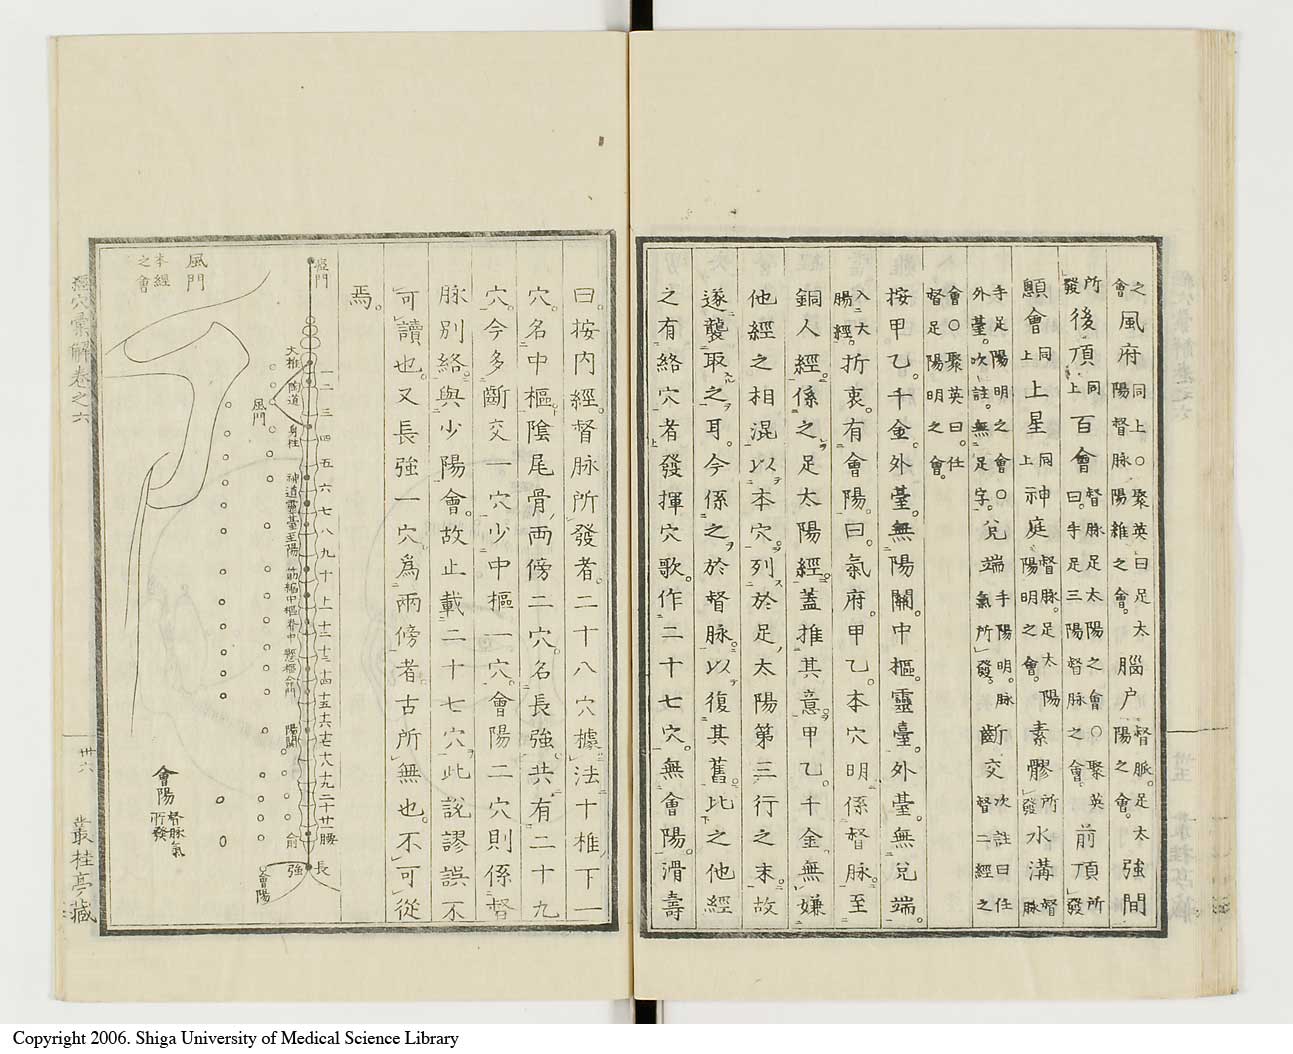 之會風府同上○聚英曰足太陽督脈陽維之會腦户督脈足太陽之會強間
所發後頂同上百會督脈足太陽之會○聚英曰手足三陽督脈之會前頂所發
顖會同上上星同上神庭督脈足太陽陽明之會素髎所發水溝督脈
手足陽明之會○次註曰任外臺次註無足字兌端手陽明脈氣所發斷交督二經之
會○聚英曰任督足陽明之會
按甲乙千金外臺無陽關中樞靈臺外臺無兌端
入大腸經折衷有會陽曰氣府甲乙本穴明係督脈至
銅人經係之足太陽經蓋推其意甲乙千金無嫌
他經之相混以本穴列於足太陽第三行之末故
遂襲取之耳今係之於督脈以復其舊此之他經
之有絡穴者發揮穴歌作二十七穴無會陽滑壽
曰按内經督脈所發者二十八穴據法十椎下一
穴名中樞陰尾骨兩傍二穴名長強共有二十九
穴今多斷交一穴少中樞一穴會陽二穴則係督
脈別絡與少陽會故止載二十七穴此説謬誤不
可讀也又長強一穴為兩傍者古所無也不可從
焉
瘂門
一二三四五六七八九十土十二十三十四十五十六十七十八十九二十廿一腰
大椎陶道身柱神道靈臺至陽筋縮中樞脊中懸樞命門陽關俞
長
強
會陽
風門
風門
本經之會
會陽
督脈氣所發
經穴彙解卷之六
卅六
叢桂亭藏